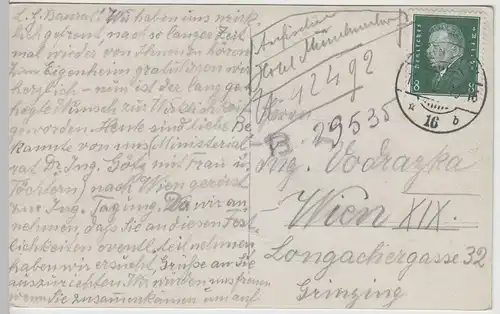 L. H. Baurat! Wir haben uns wirk-
lich gefreut nach so langer Zeit
mal wieder von Ihnen zu hören
Zum Eigenheim gratulieren wir
herzlich - nun ist der lang ge-
hegte Wunsch zur Wirklichkeit
geworden. Heute sind liebe Be-
kannte von uns Ministerial
rat Dr. Ing. Götz mit Frau u.
Töchtern nach Wien gereist
zur Ing. Tagung. Da wir an-
nehmen, daß Sie an diesen Fest-
lichkeiten eventl. teil nehmen
haben wir ersucht, Grüße an Sie
auszurichten. Wir würden uns freuen
wenn Sie zusammenkämen um auf
Hotel Münchnerhof
12492
Herrn
B 29535
Ing. Vodrazka
Wien XIX.
Longachergasse 32
Grinzing
DEUTSCHES REICH
8 8
16
* 16 b